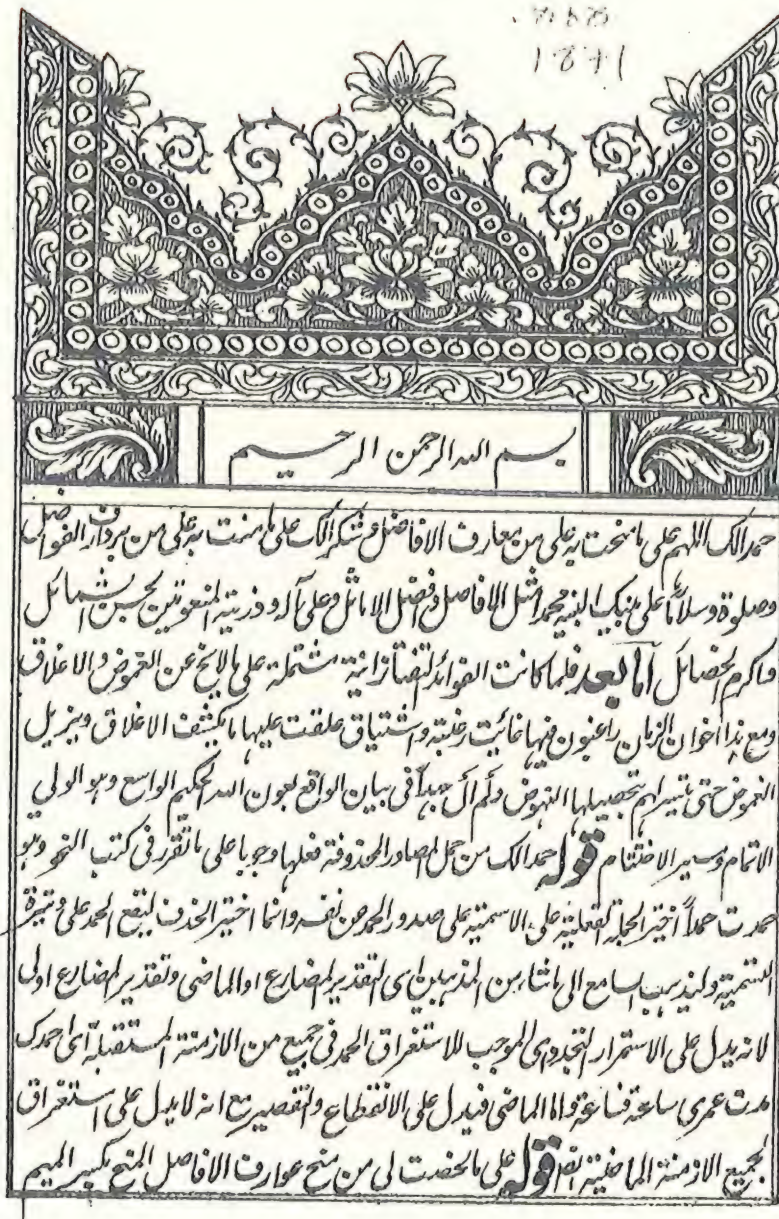 بسم الله الرحمن الرحيم
حمدا لك اللهم على ما منحت به على من معارف الافاضل وشكرا لك على ما مننت به على من بردارف الفواضل
وصلوة وسلاما على نبيك النبيه محمد امثل الافاضل وافضل الاماثل وعلى آله وذريته المنعوتين بحسن الشمائل
واكرم الخصائل اما بعد فلما كانت الفوائد التفتازانية مشتملة على ما لا يخ عن الغموض والاغلاق
ومع هذا اخوان الزمان راغبون فيها غائيت رغبته واشتياق علقت عليها ما يكشف الاغلاق ويزيل
الغموض حتى يتيسر لهم تحصيلها النهوض ولم آل جهدا فى بيان الواقع بعون الله الحكيم الواسع وهو الولى
الاتمام وميسر الاختتام قوله حمدا لك من جمل المصادر المحذوفة فعلها وجوبا على ما تقرر فى كتب النحو وهو
حمدت حمدا اختير الجملة الفعلية على الاسمية على صدور الحمد من نفسه وانما اختير الحذف ليقع الحمد على وتيرة
التسمية وليذهب السامع الى ما شاء من المذهبين اى التقدير المضارع او الماضى وتقدير المضارع اولى
لانه يدل على الاستمرار التجددى الموجب للاستغراق الحمد فى جميع من الازمنة المستقبلة اى احمدك
مدت عمرى ساعة فساعة واما الماضى فيدل على الانقطاع والتقصير مع انه لا يدل على استغراق
لجميع الازمنة الماضية ايضا قوله على ما لخصت لى من منح عوارف الافاضل المنح بكسر الميم